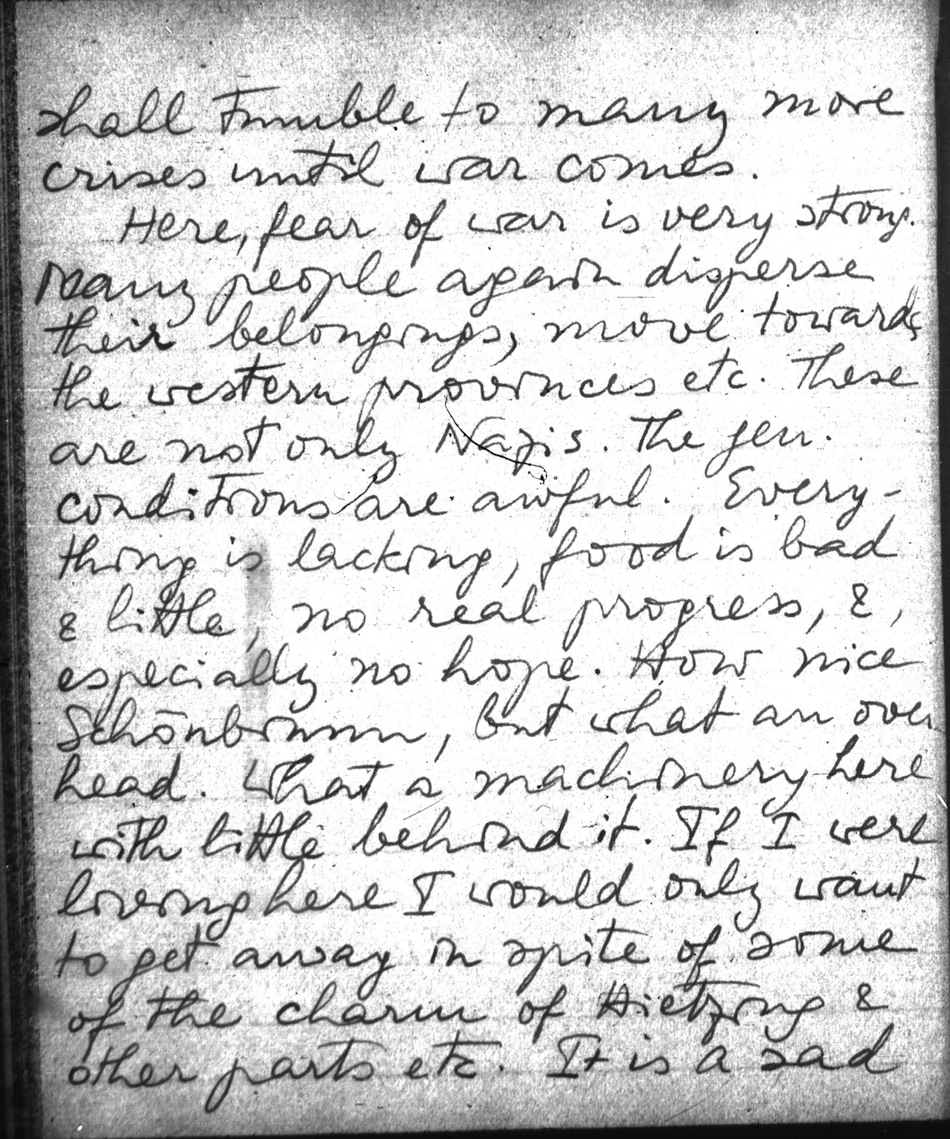 shall tumble to many more
crises until war comes.
Here, fear of war is very strong.
Many people again disperse
their belongings, move towards
the western provinces etc. These
are not only Nazis. The gen.
conditions are awful. Every-
thing is lacking, food is bad
& little, no real progress, &,
especially no hope. How nice
Schönbrunn, but what an over
head. What a machinery here
with little behind it. If I were
living here I would only want
to get away in spite of some
of the charm of Hietzing &
other parts etc. It is a sad